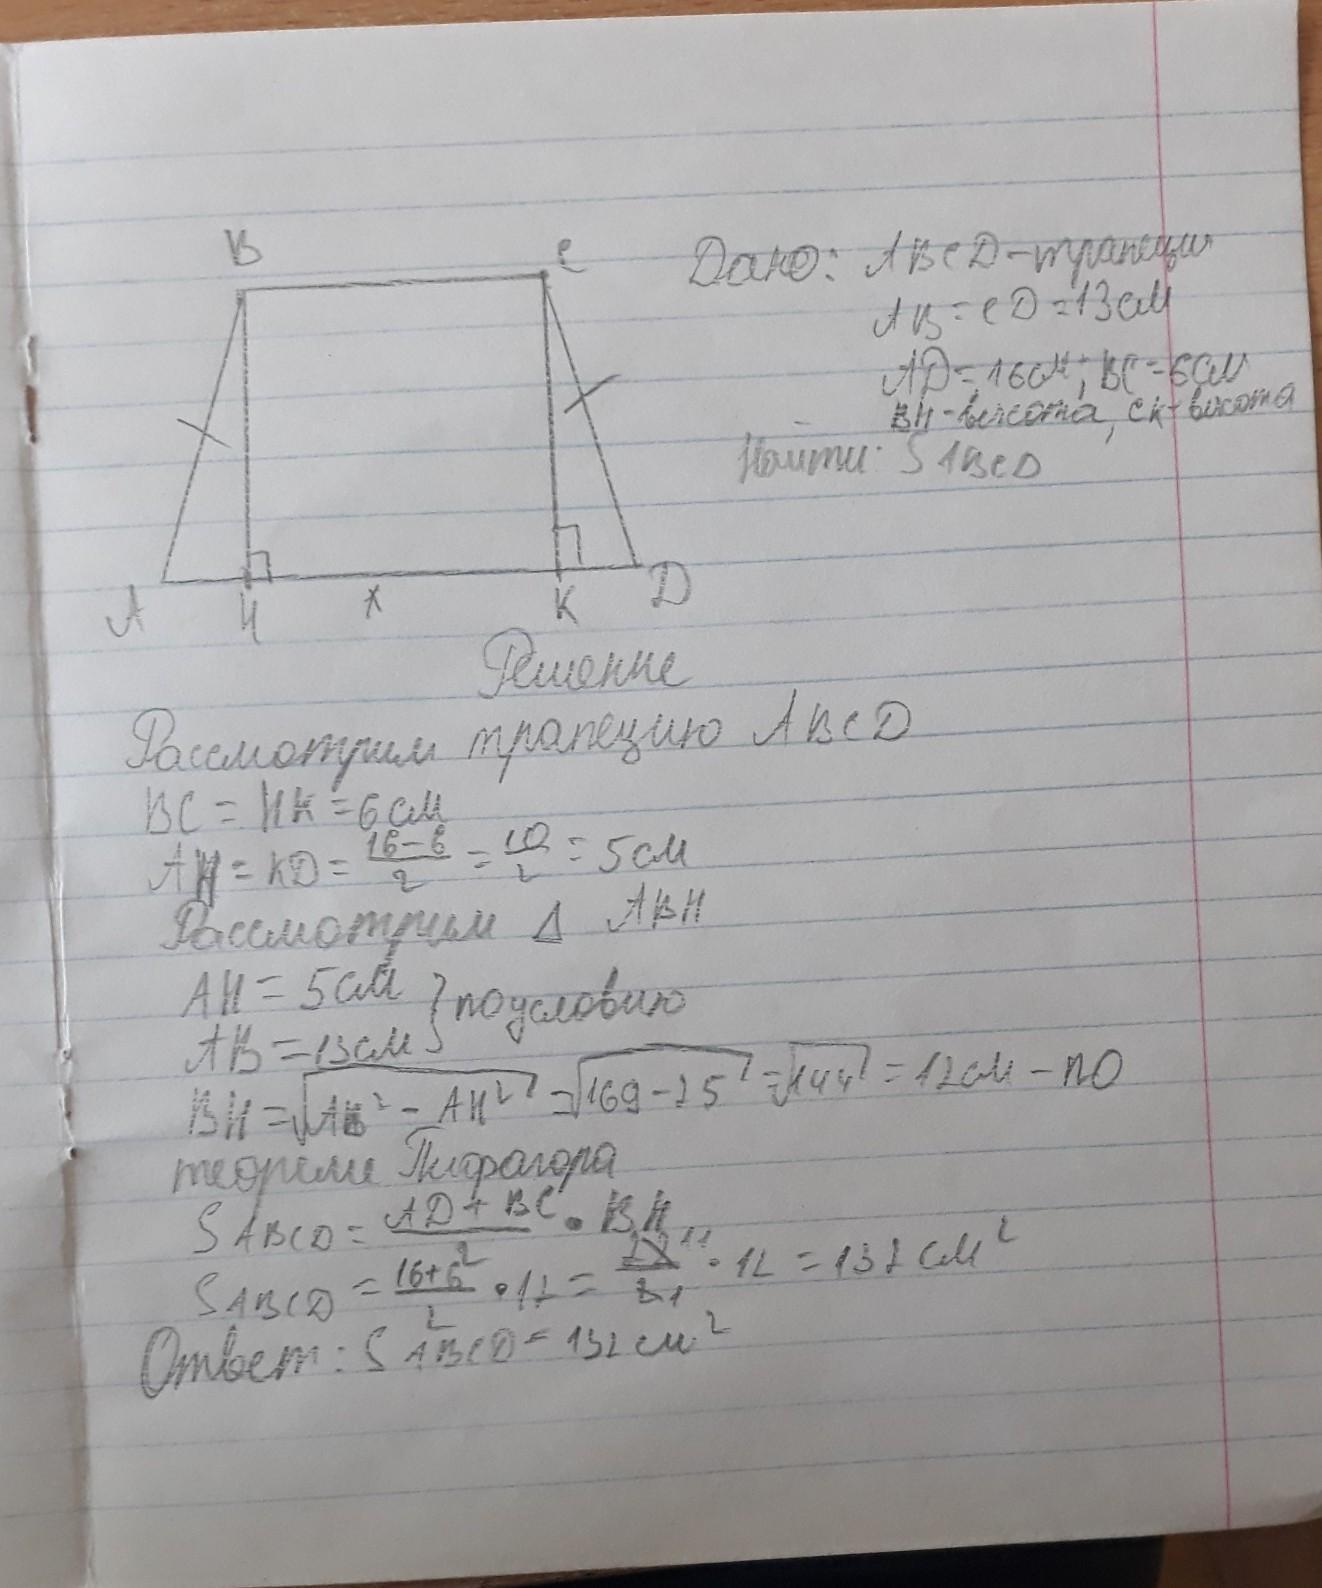 B C
Дано: ABCD-трапеция
AB = CD = 13см
AD = 16см; BC = 6см
BH-высота, CK-высота
Найти: S ABCD
A H x K D
Решение
Рассмотрим трапецию ABCD
BC = HK = 6 см
AH = KD = \frac{16-6}{2} = \frac{10}{2} = 5 см
Рассмотрим Δ ABH
AH = 5 см } по условию
AB = 13см
BH = √AB² - AH² = √169-25 = √144 = 12см - по
теореме Пифагора
S ABCD = \frac{AD+BC}{2} • BH
S ABCD = \frac{16+6}{2} • 12 = \frac{22 11}{2 1} · 12 = 132 см²
Ответ: S ABCD = 132 см²